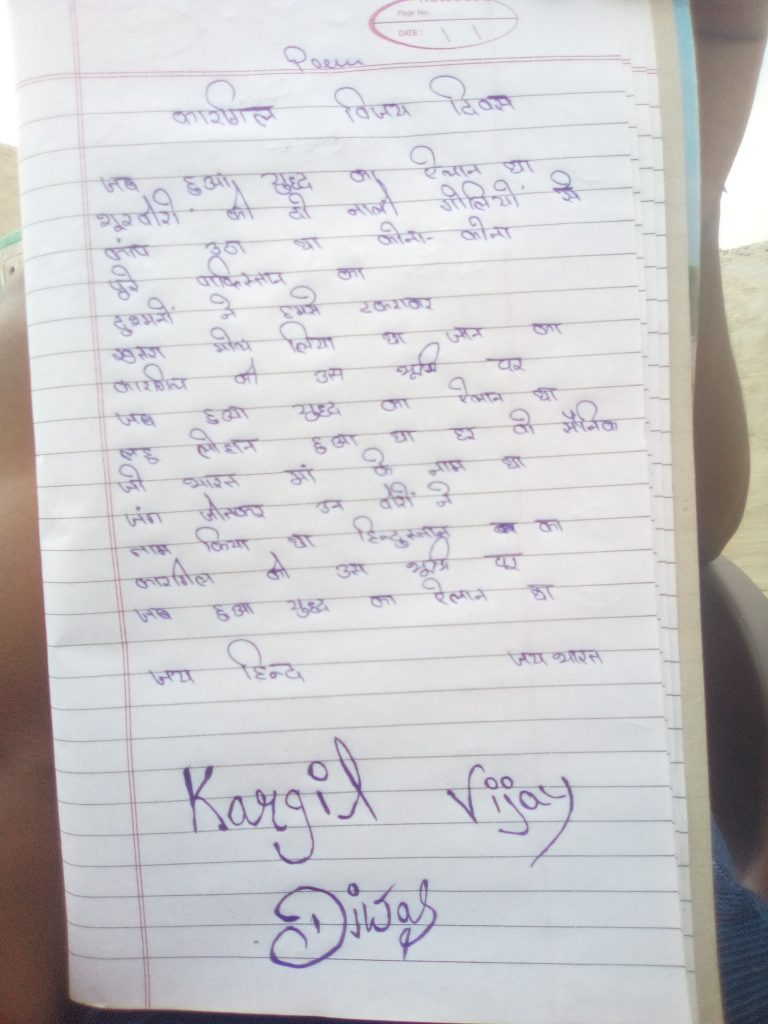 Page No.
DATE:
Poem
कारगिल विजय दिवस
जब हुआ युद्ध का ऐलान था
शूरवीरों की दो नाली गोलियों से
कांप उठा था कोना-कोना
पुरे पाकिस्तान का
दुश्मनों ने हमसे टकराकर
खतरा मोल लिया था जान का
कारगिल की उस भूमि पर
जब हुआ युद्ध का ऐलान था
लहु लोहान हुआ था हर वो सैनिक
जो भारत मां के नाम था
जंग जीतकर उन वीरों ने
नाम किया था हिन्दुस्तान का
कारगिल की उस भूमि पर
जब हुआ युद्ध का ऐलान था
जय हिन्द जय भारत
Kargil Vijay
Diwas